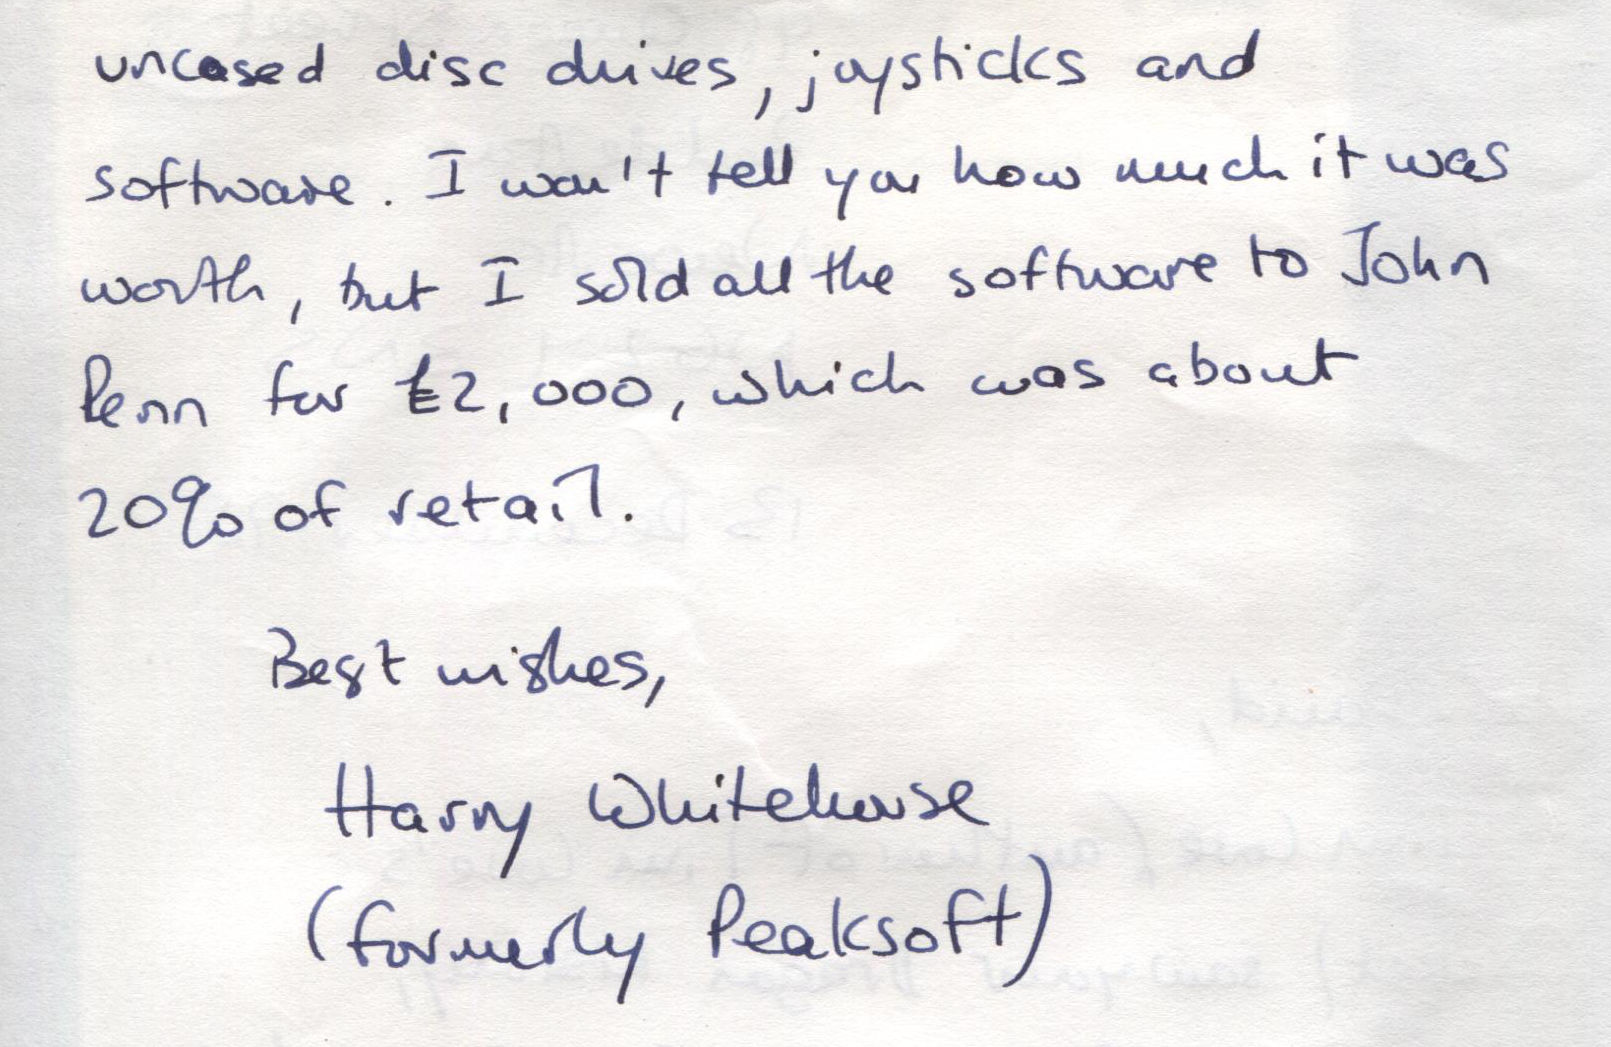 uncased disc drives, joysticks and
software. I won't tell you how much it was
worth, but I sold all the software to John
Penn for £2,000, which was about
20% of retail.
Best wishes,
Harry Whitehouse
(formerly Peaksoft)